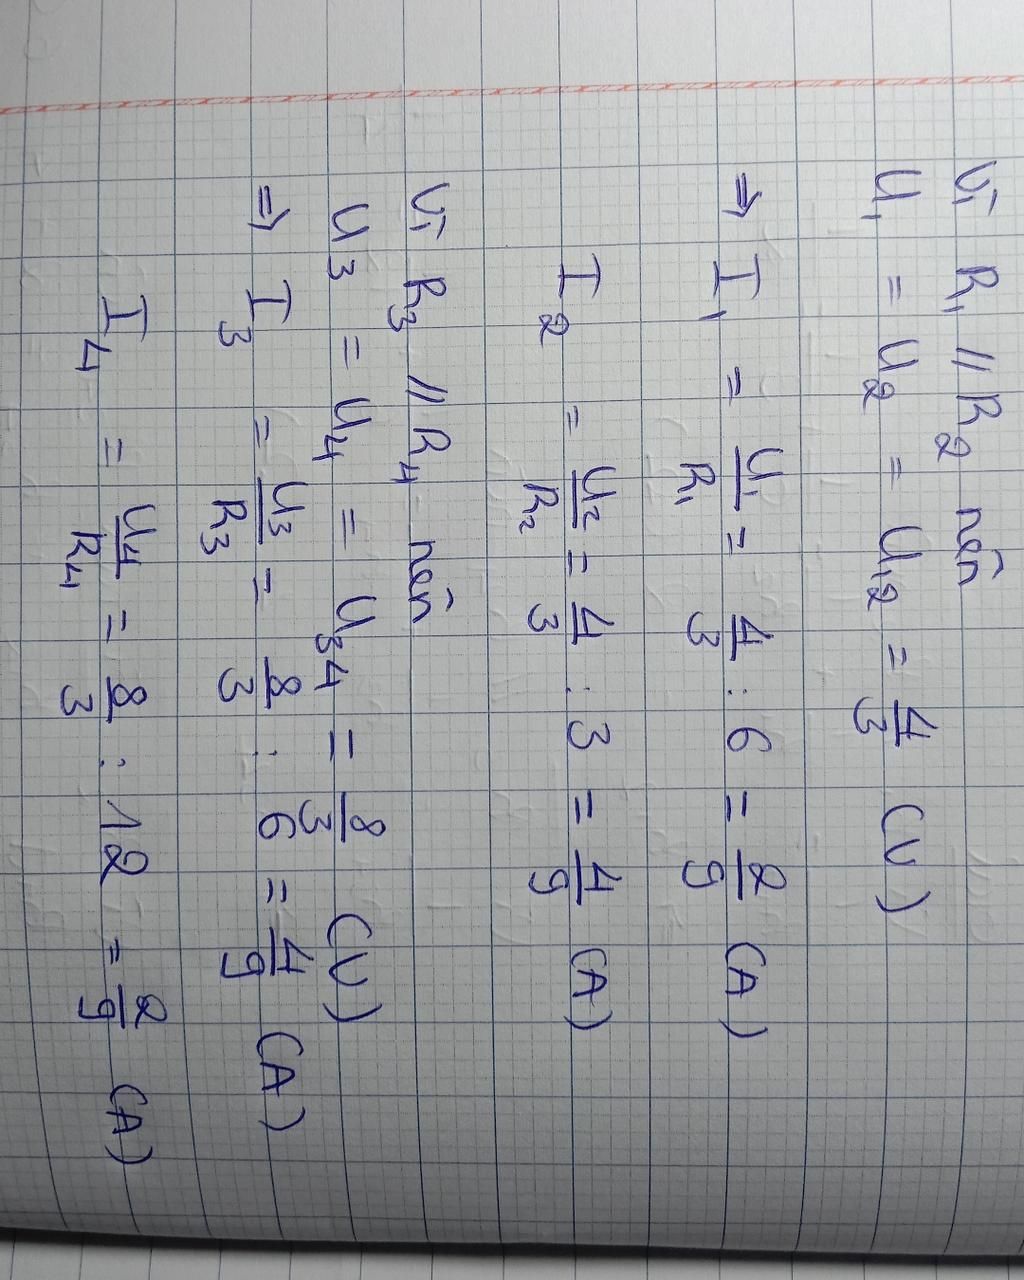 Vì R₁ // R₂ nên
U₁ = U₂ = U₁₂ = 4/3 (V)
⇒ I₁ = U₁/R₁ = 4/3 : 6 = 2/9 (A)
I₂ = U₂/R₂ = 4/3 : 3 = 4/9 (A)
Vì R₃ // R₄ nên
U₃ = U₄ = U₃₄ = 8/3 (V)
⇒ I₃ = U₃/R₃ = 8/3 : 6 = 4/9 (A)
I₄ = U₄/R₄ = 8/3 : 12 = 2/9 (A)